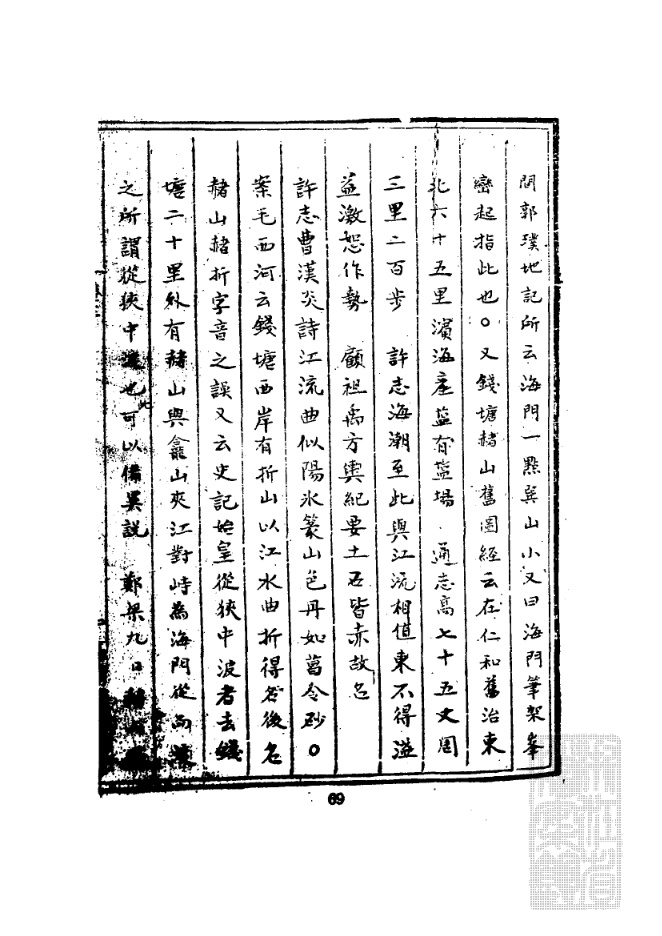 間郭璞地記所云海門一點巽山小又曰海門筆架峯
巒起指此也。又錢塘赭山舊圖經云在仁和舊治東
北六十五里濱海產盐有盐場 通志高七十五丈周
三里二百步 許志海潮至此與江流相值東不得溢
益激怒作勢 顧祖禹方輿紀要土石皆赤故名
許志曹漢炎詩江流曲似陽氷篆山色丹如葛令砂。
案毛西河云錢塘西岸有折山以江水曲折得名後名
赭山赭折字音之誤又云史記始皇從狹中波者去錢
塘二十里外有赭山與龕山夾江對峙為海門從西
之所謂從狹中也此可以備異說 鄭梁九日
69